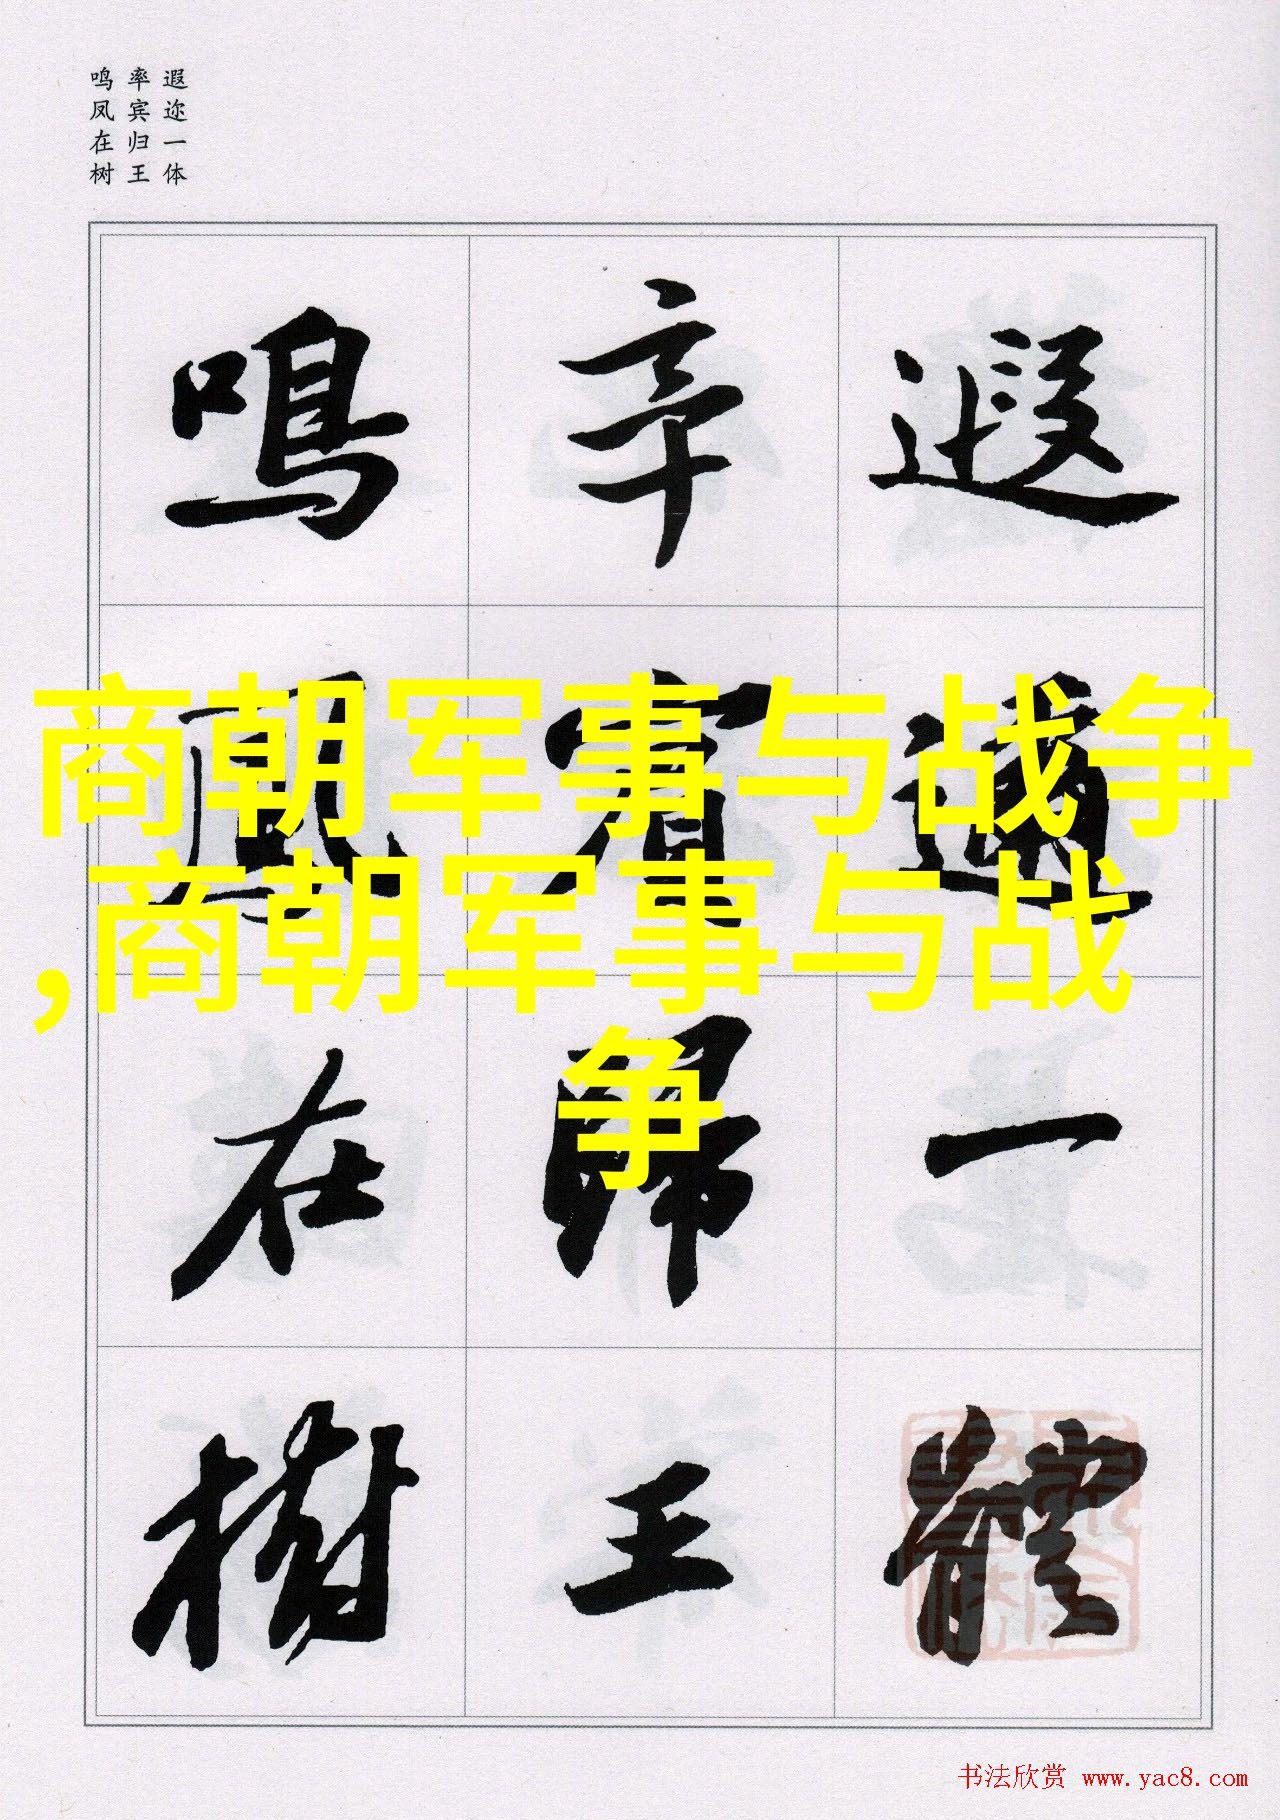 遐迩一体
率宾归王
鸣凤在树
遐邇一體
率賓歸王
鳴鳳在樹
商朝军事与战争
,商朝军事与战
争
书法欣赏 www.yac8.com